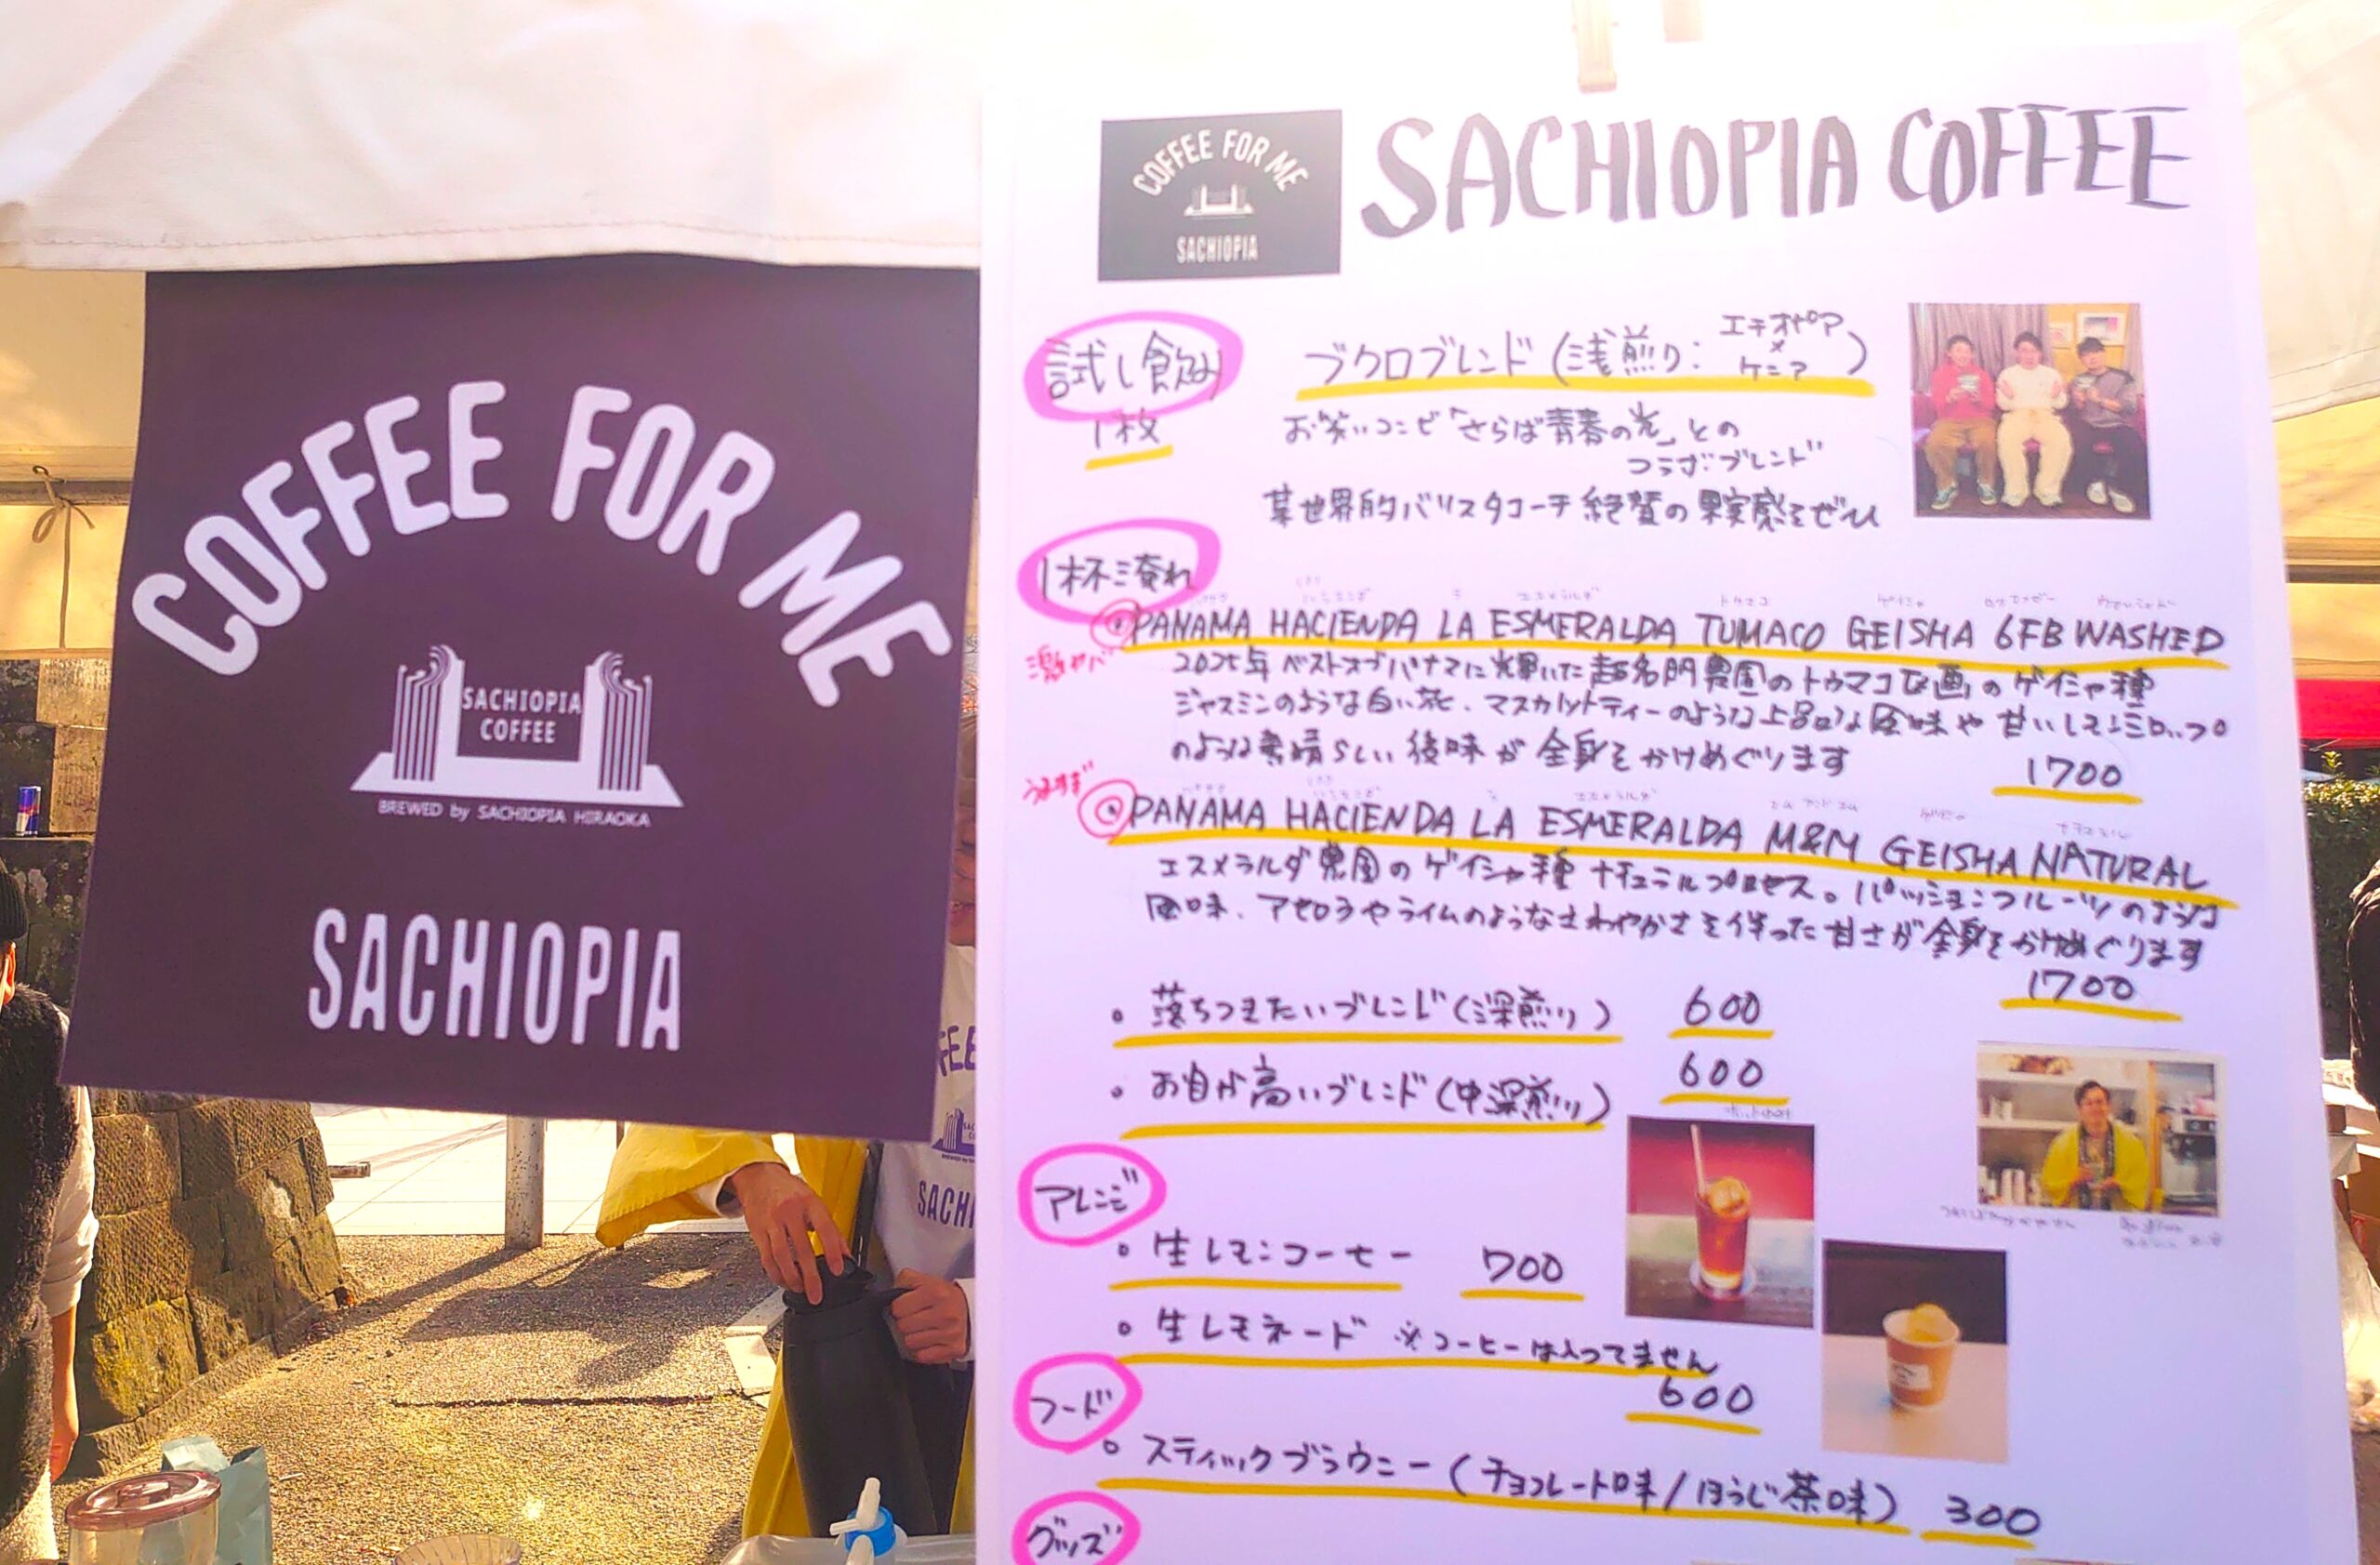 COFFEE FOR ME
SACHIOPIA
COFFEE
BREWED by SACHIOPIA HIRAOKA
SACHIOPIA
COFFEE FOR ME
SACHIOPIA
SACHIOPIA COFFEE
試し飲み
1枚
ブクロブレンド(浅煎り:エチオピア×ケニア)
お笑いコンビ「さらば青春の光」との
コラボブレンド
某世界的バリスタコーチ絶賛の果実感をぜひ
1杯淹れ
激ヤバ
PANAMA HACIENDA LA ESMERALDA TUMACO GEISHA 6FB WASHED
2025年ベストオブパナマに輝いた超名門農園のトウマコ区画のゲイシャ種
ジャスミンのような白い花、マスカットティーのような上品な風味や甘いレモンシロップ
のような素晴らしい後味が全身をかけめぐります
1700
うますぎ
PANAMA HACIENDA LA ESMERALDA M&M GEISHA NATURAL
エスメラルダ農園のゲイシャ種ナチュラルプロセス。パッションフルーツのような
風味、アセロラやライムのようなさわやかさを伴った甘さが全身をかけめぐります
1700
・落ちつきたいブレンド(深煎り) 600
・お目が高いブレンド(中深煎り) 600
アレンジ
・生レモンコーヒー 700
・生レモネード ※コーヒーは入ってません
600
フード
・スティックブラウニー(チョコレート味/ほうじ茶味) 300
グッズ